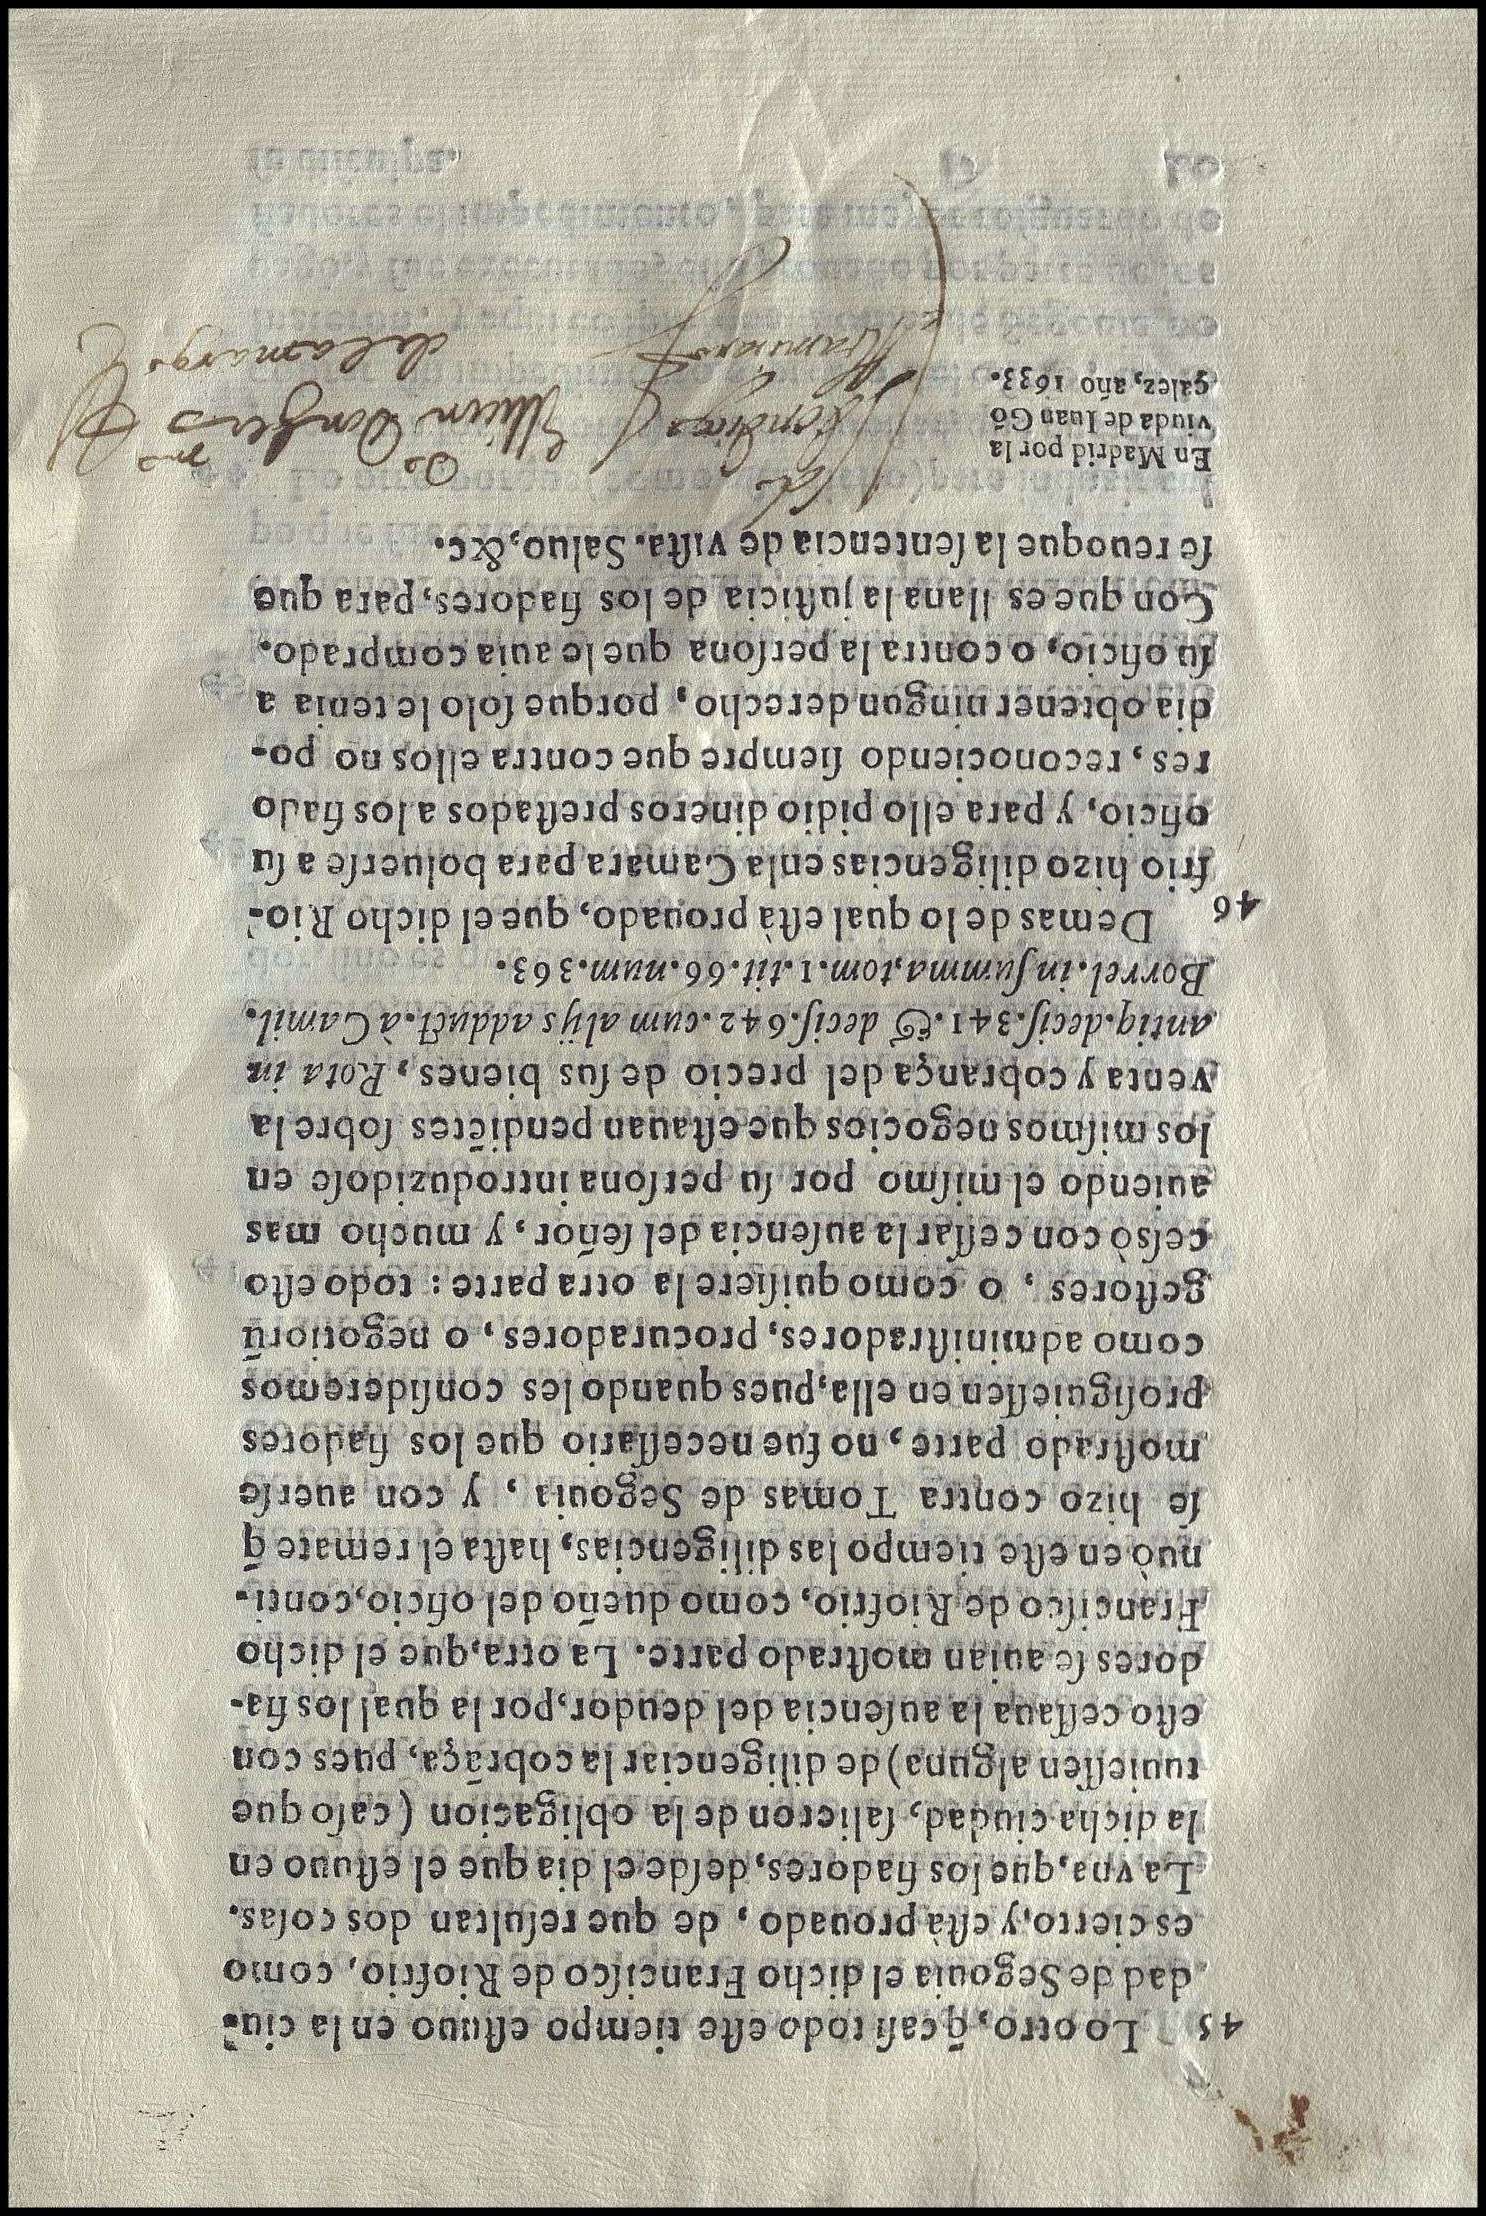 45 Lo otro, q̃ casi todo este tiempo estuuo en la ciu-
dad de Segouia el dicho Francisco de Riofrio, como
es cierto, y està prouado, de que resultan dos cosas.
La vna, que los fiadores, desde el dia que el estuuo en
la dicha ciudad, salieron de la obligacion (caso que
tuuiessen alguna) de diligenciar la cobrãça, pues con
esto cessaua la ausencia del deudor, por la qual los fia-
dores se auian mostrado parte. La otra, que el dicho
Francisco de Riofrio, como dueño del oficio, conti-
nuò en este tiempo las diligencias, hasta el remate q̃
se hizo contra Tomas de Segouia, y con auerse
mostrado parte, no fue necessario que los fiadores
prosiguiessen en ella, pues quando les consideremos
como administradores, procuradores, o negotiorũ
gestores, o como quisiere la otra parte: todo esto
cessò con cessar la ausencia del señor, y mucho mas
auiendo el mismo por su persona introduzidose en
los mismos negocios que estauan pendiẽtes sobre la
venta y cobrança del precio de sus bienes, Rota in
antiq. decis. 341. & decis. 642. cum alijs adduct. à Camil.
Borrel. in summa, tom. 1. tit. 66. num. 363.
46 Demas de lo qual està prouado, que el dicho Rio-
frio hizo diligencias en la Camara para boluerse a su
oficio, y para ello pidio dineros prestados a los fiado
res, reconociendo siempre que contra ellos no po-
dia obtener ningun derecho, porque solo le tenia a
su oficio, o contra la persona que le auia comprado.
Con que es llana la justicia de los fiadores, para que
se reuoque la sentencia de vista. Saluo, &c.
En Madrid por la
viuda de Iuan Gõ
çalez, año 1633.